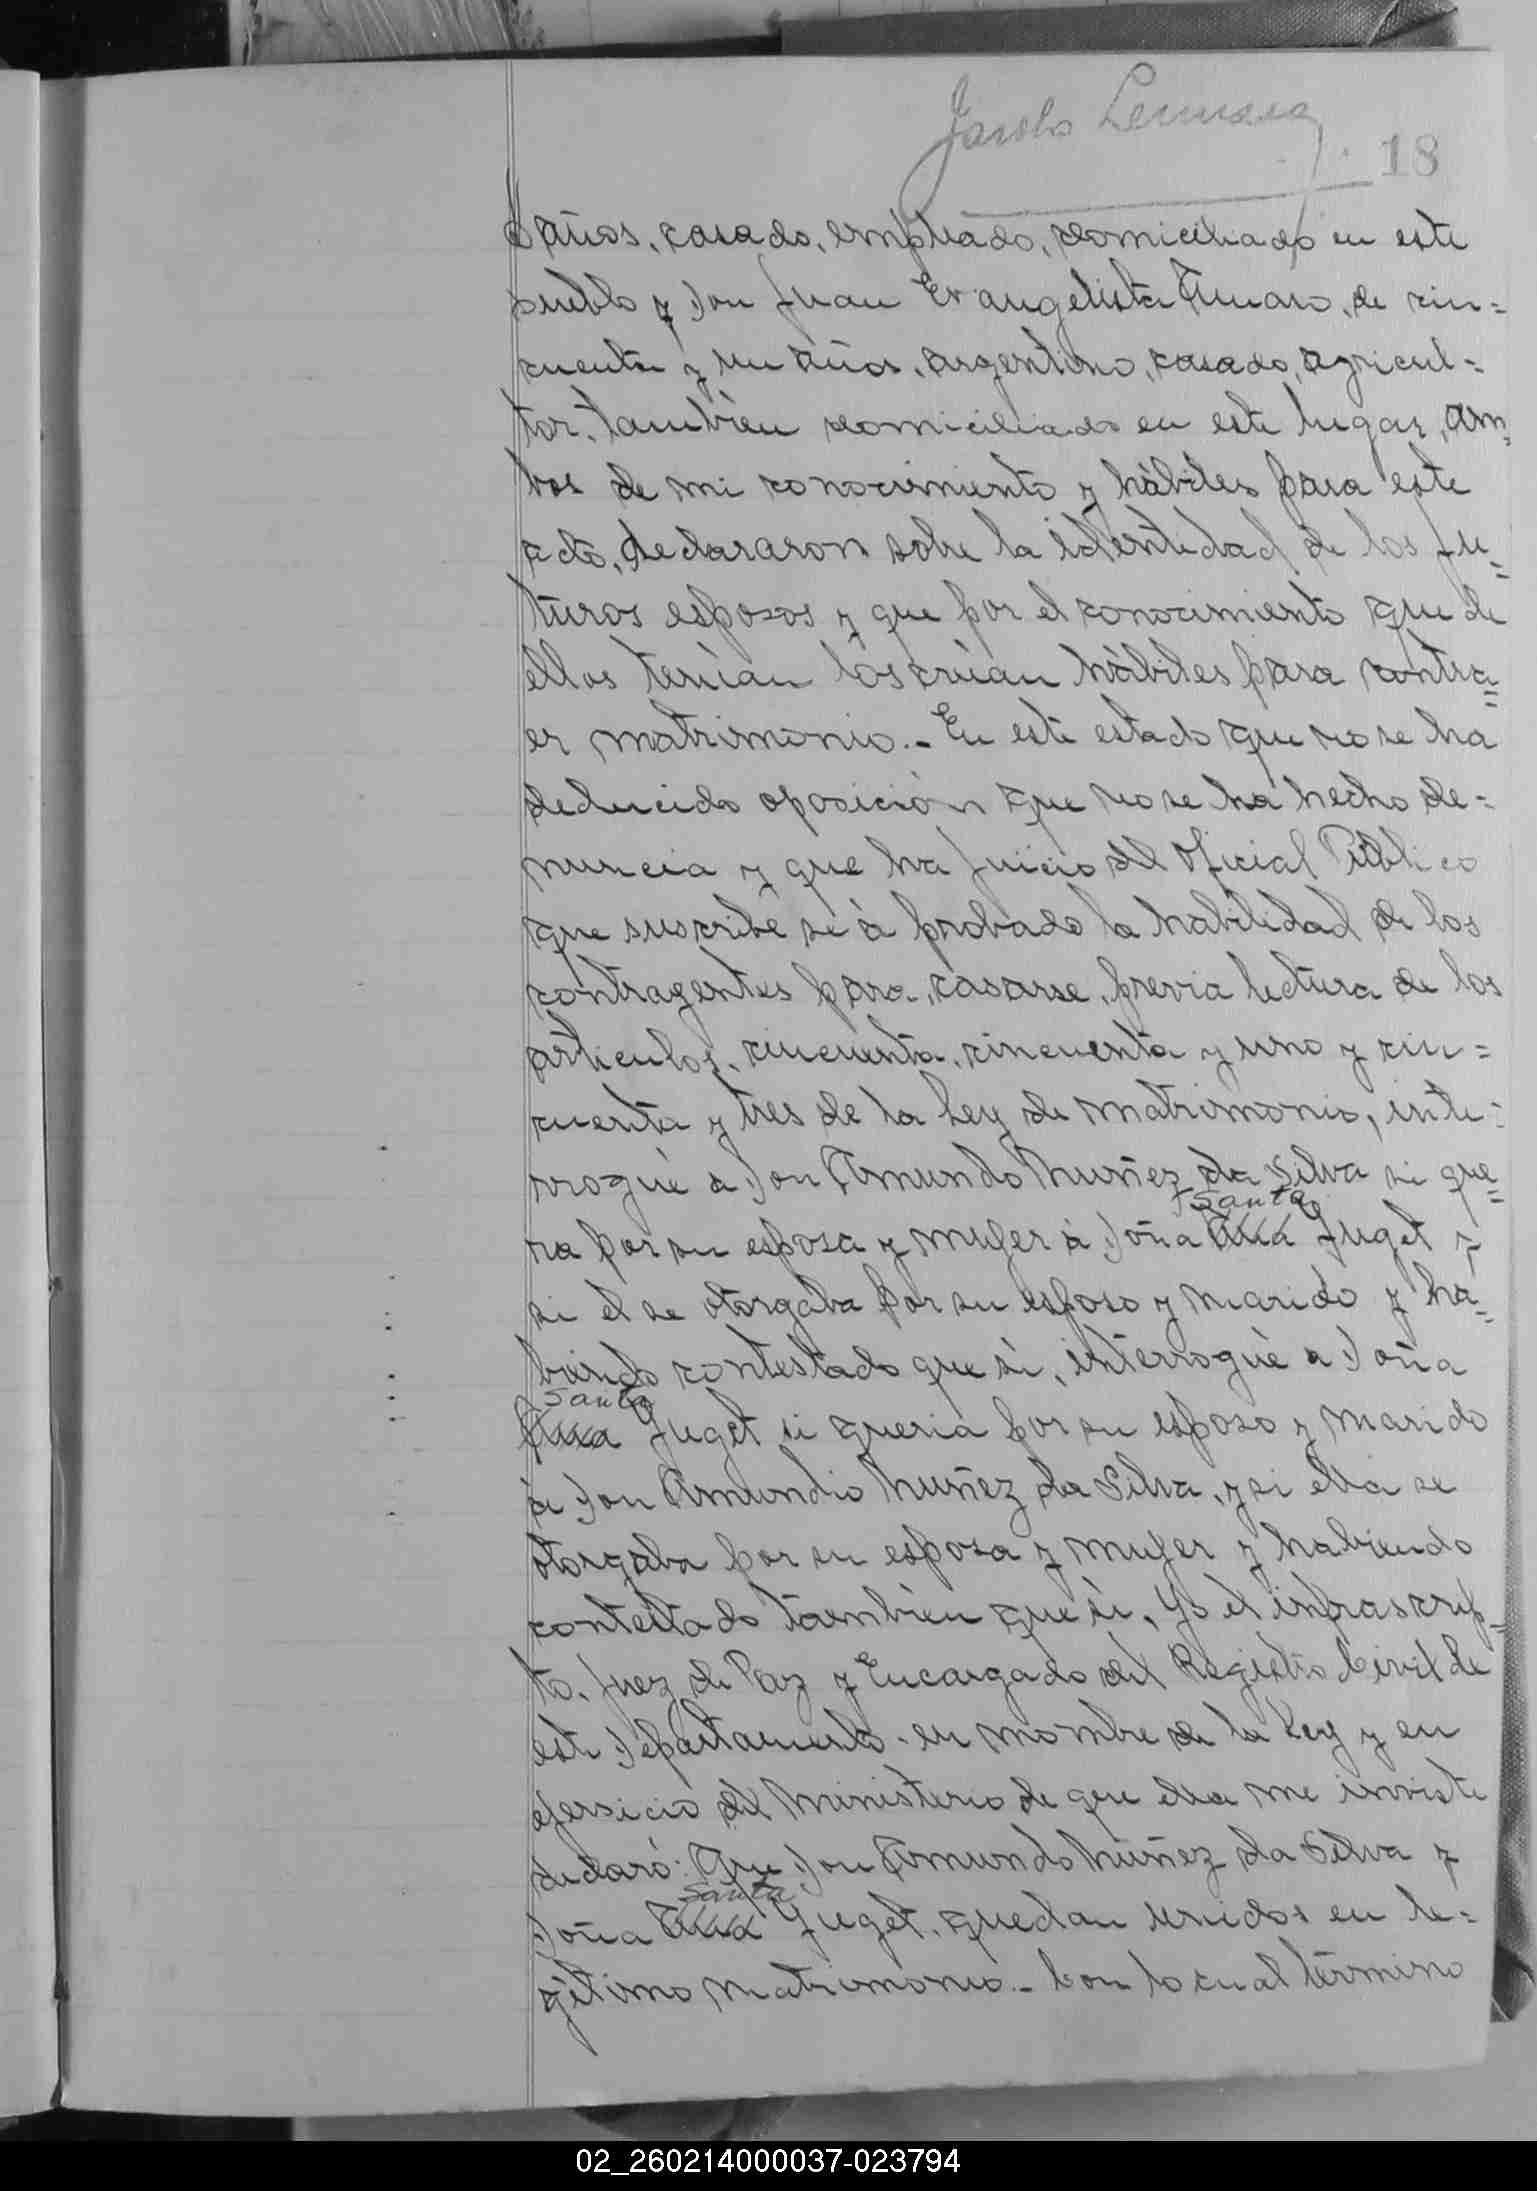 Jacobo
18
años, casado, empleado, domiciliado en este
pueblo y Don Juan Evangelista Amaro, de cin=
cuenta y un años, argentino, casado, agricul=
tor, tambièn domiciliado en este lugar, am=
bos de mi conocimiento y hàbiles para este
acto, declararon sobre la identidad de los fu=
turos esposos y que por el conocimiento que de
ellos tenìan los creìan hàbiles para contra=
er matrimonio.- En este estado que no se ha
deducido oposiciòn que no se ha hecho de=
nuncia y que ha juicio del Oficial Pùblico
que suscribe se à probado la habilidad de los
contragentes para, casarse, previa lectura de los
articulos, cincuenta, cincuenta y uno y cin=
cuenta y tres de la Ley de Matrimonio, inte=
rroguè a Don Amundo Nuñez da Silva si que=
Santa
ria por su esposa y mujer à Doña Ana Juget y
si el se otorgaba por su esposo y marido y ha=
biendo contestado que sì, interroguè a Doña
Santa
Ana Juget si queria por su esposo y marido
à Don Amundio Nuñez da Silva, y si ella se
otorgaba por su esposa y mujer y habiendo
contestado tambièn que sì, Yo el infrascrip=
to, Juez de Paz y Encargado del Registro Civil de
este Departamento en nombre de la Ley y en
ejersicio del Ministerio de que ella me inviste
declarò: Que Don Amundo Nuñez da Silva y
Santa
Doña Ana Juget, quedan unidos en le=
gìtimo matrimonio.- Con lo cual tèrmino
02_260214000037-023794